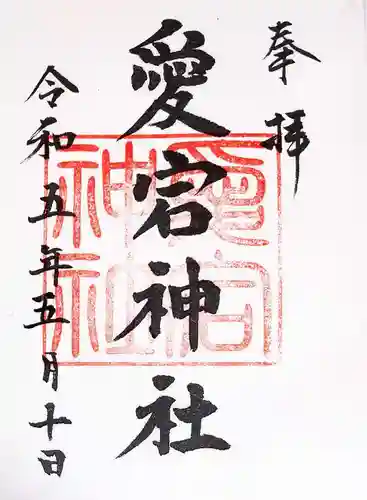 奉拝
愛宕神社
令和五年五月十日
愛宕神社